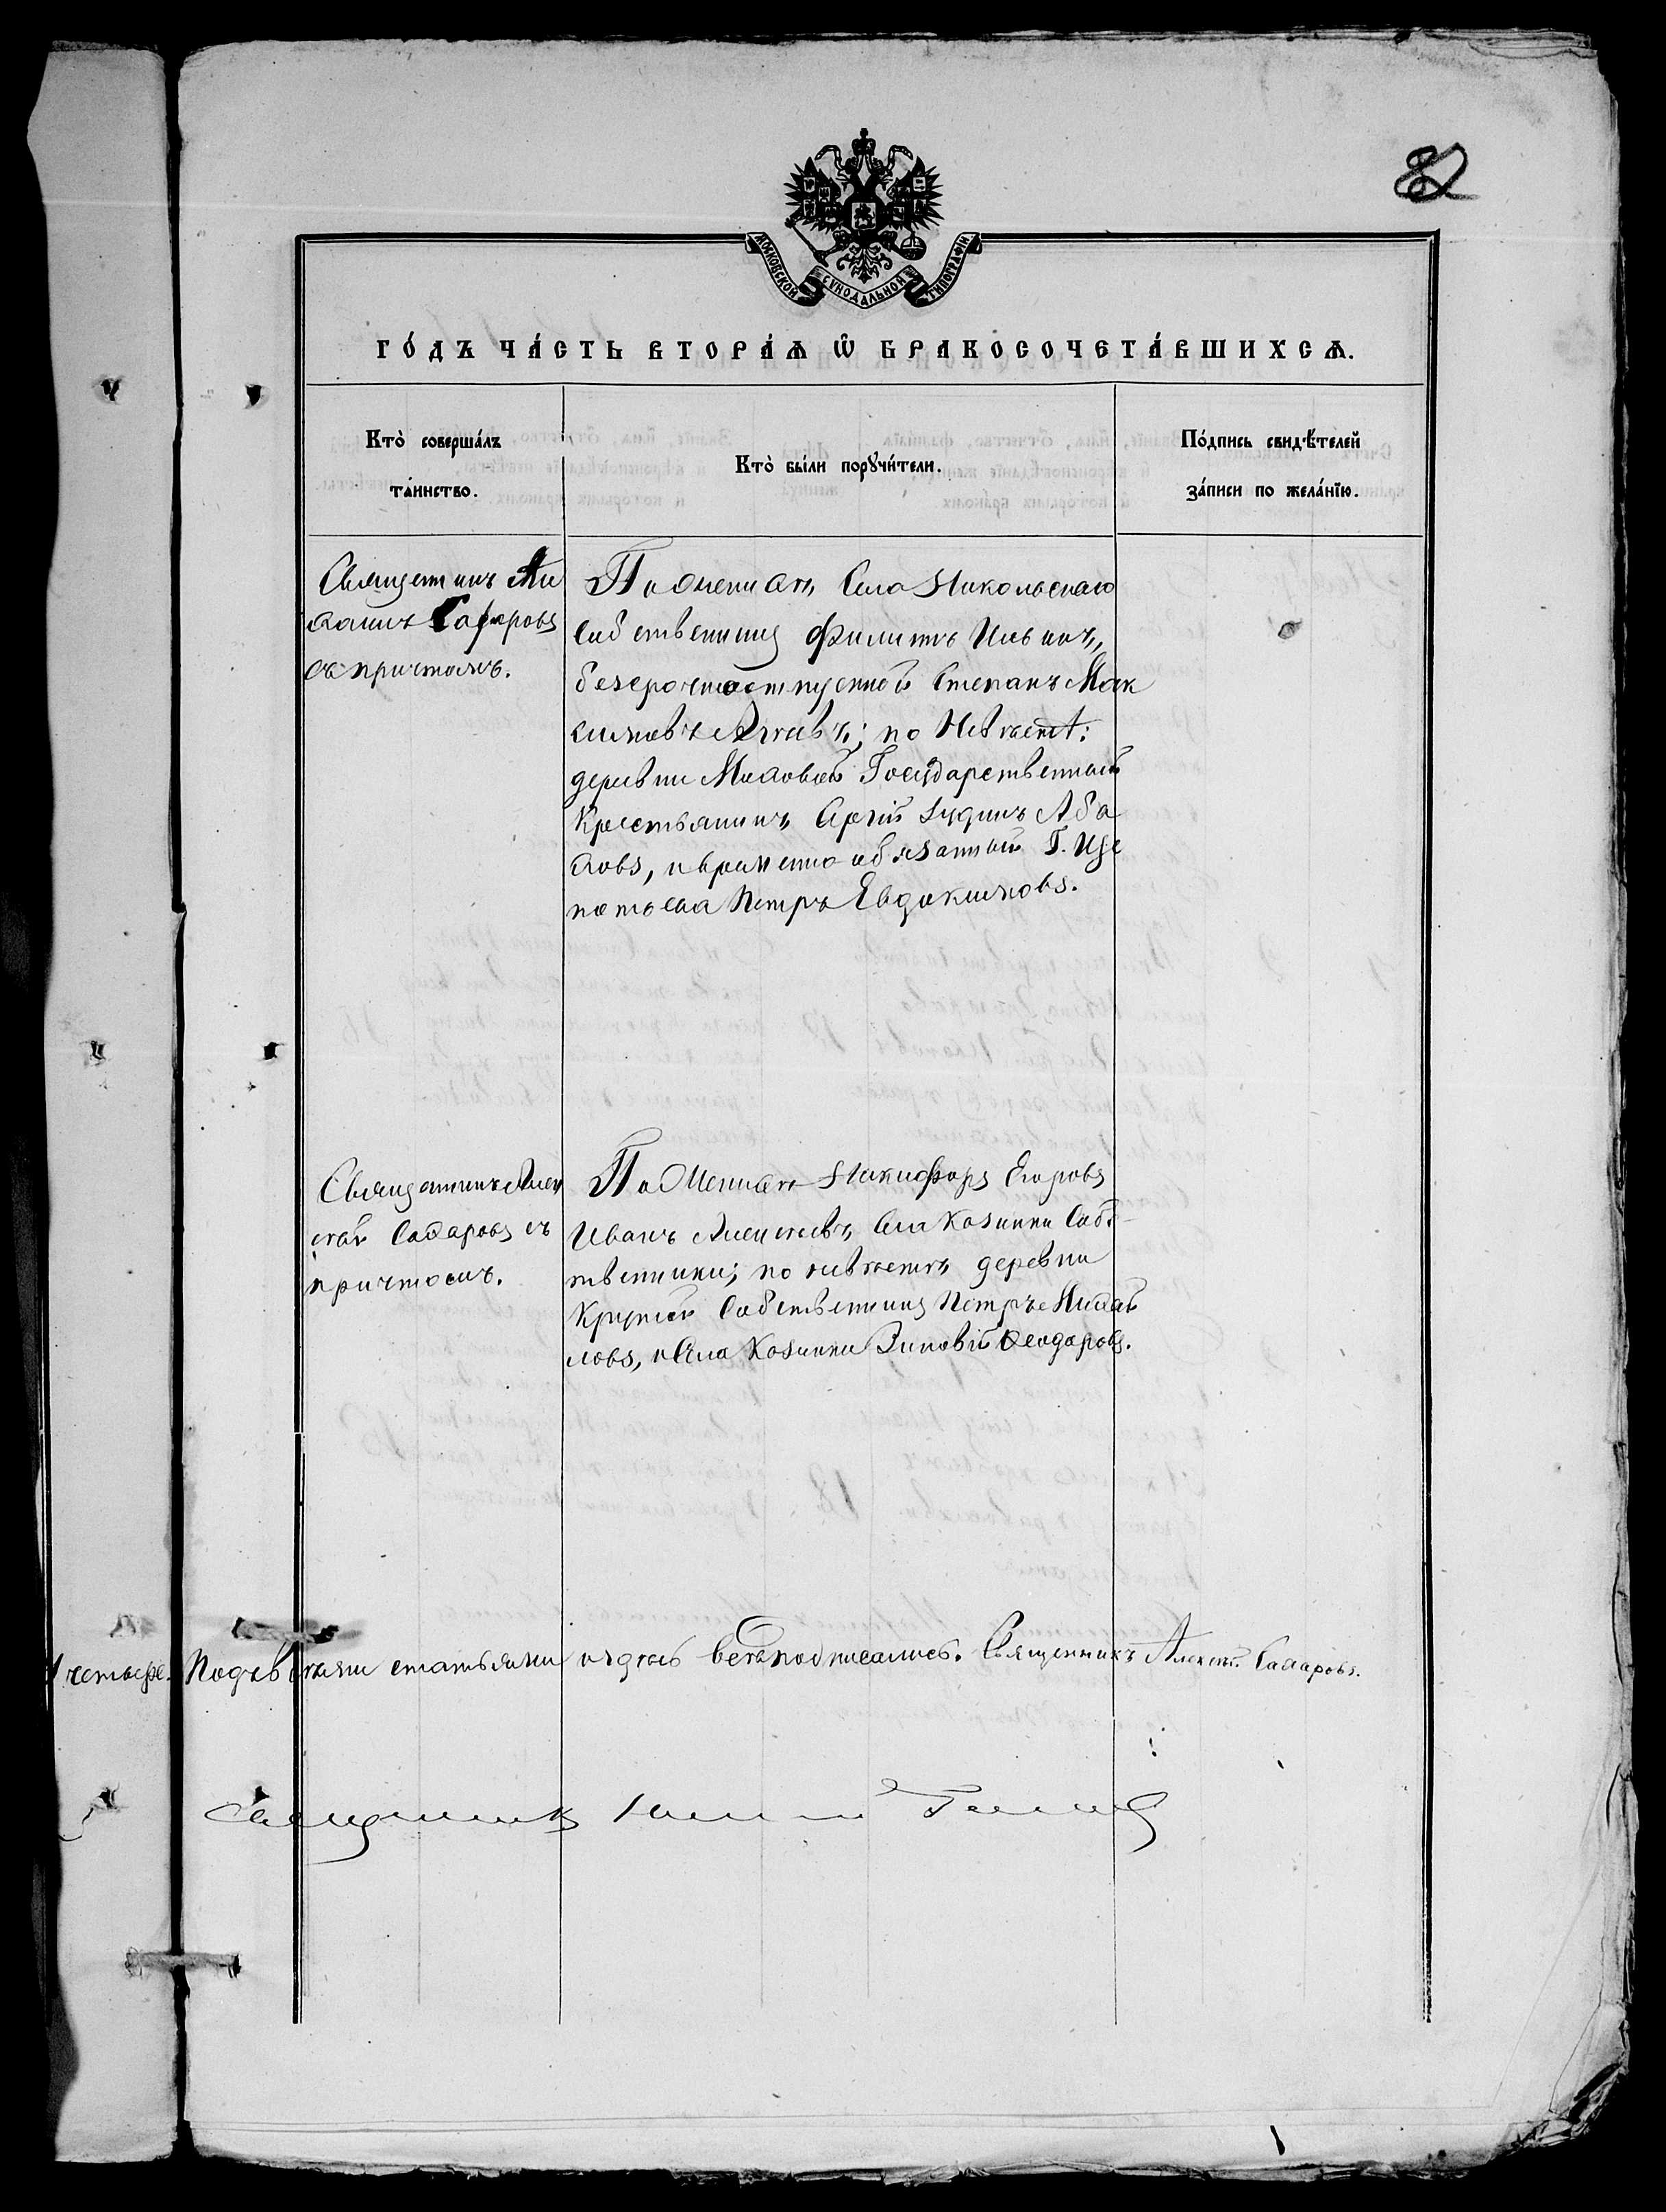 82
МОСКОВСКОЙ СУНОДАЛЬНОЙ ТИПОГРАФІИ
ГО́ДЪ ЧА́СТЬ ВТОРА́Ѧ Ѿ БРАКОСОЧЕТА́ВШИХСѦ.
Кто̀ соверша́лъ
та́инство.
Кто̀ бы́ли порꙋчи́тели.
По́дпись свидѣ́телей
за́писи по жела́нїю.
Священникъ Ми
хаилъ
съ причтомъ.
По женихѣ Села Никольскаго
собственникъ Филиппъ Ильинъ,
безсрочноотпускной Степанъ Мак
симовъ по Невѣстѣ:
деревни Государственный
Крестьянинъ Сергій Іудинъ Аба
и временно обязанный Г.
Петръ Евдокимовъ.
Священникъ Алек
сѣй Сахаровъ съ
причтомъ.
По Женихѣ Никифоръ Егоровъ
Иванъ Алексѣевъ, Села Козинки Собс
твенники; по невѣстѣ деревни
Крутой Собственникъ Петръ Михай
ловъ, и Села Козинки Зиновій Ѳеодоровъ.
четыре. Подъ всѣми статьями и здѣсь Священникъ Алексѣй Сахаровъ.
Священникъ